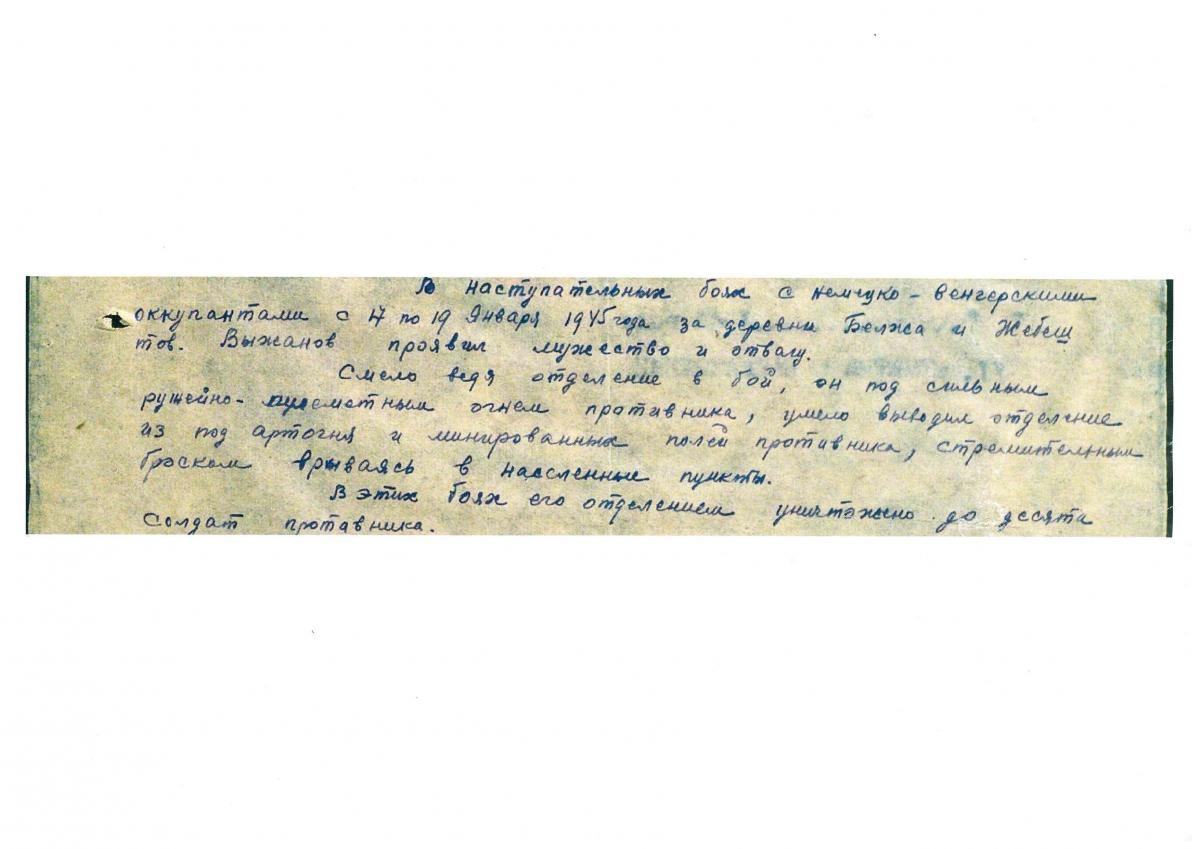 В наступательных боях с немецко-венгерскими
оккупантами с 17 по 19 Января 1945 года за деревни Белжа и Жебеш
тов. Выжанов проявил мужество и отвагу.
Смело ведя отделение в бой, он под сильным
ружейно-пулеметным огнем противника, умело выводил отделение
из под артогня и минированных полей противника, стремительным
броском врываясь в населенные пункты.
В этих боях его отделением уничтожено до десята
солдат противника.